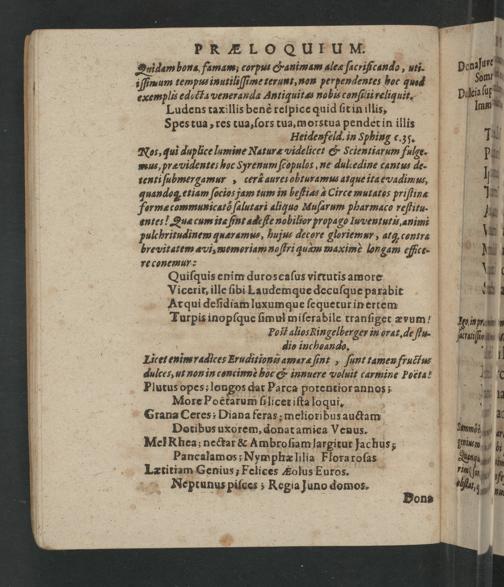 PRÆLOQUIUM.
Quidam bona, famam; corpus & animam aleæ sacrificando, uti-
lissimum tempus inutilissime terunt, non perpendentes hoc quod
exemplis edocta veneranda Antiquitas nobis consilii reliquit.
Ludens taxillis benè respice quid sit in illis,
Spes tua, res tua, sors tua, mors tua pendet in illis
Heidenfeld. in Sphing c.35.
Nos, qui duplice lumine Naturæ videlicet & Scientiarum fulge-
mus, prævidentes hos Syrenum scopulos, ne dulcedine cantus de-
tenti submergamur, cerâ aures obturamus atque ita evadimus,
quandoq, etiam socios jam tum in bestias à Circe mutatos pristinæ
formæ communicatô salutari aliquo Musarum pharmaco restitu-
entes! Quæ cum ita sint adeste nobilior propago Iuventutis, animi
pulchritudinem quæramus, hujus decore gloriemur, atq, contra
brevitatem ævi, memoriam nostri quàm maximè longam effice-
re conemur:
Quisquis enim duros casus virtutis amore
Vicerit, ille sibi Laudemque decusque parabit
At qui desidiam luxumque sequetur inertem
Turpis inopsque simul miserabile transiget ævum!
Poët alios Ringelberger in orat, de stu-
dio inchoando.
Licet enim radices Eruditionis amaræ sint, sunt tamen fructus
dulces, ut non inconcinnè hoc & innuere voluit carmine Poëta!
Plutus opes; longos dat Parca potentior annos;
More Poëtarum si licet ista loqui.
Grana Ceres; Diana feras; melioribus auctam
Dotibus uxorem, donat amica Venus.
Mel Rhea; nectar & Ambrosiam largitur Jachus;
Pan calamos; Nymphæ lilia Flora rosas
Lætitiam Genius; Felices Æolus Euros.
Neptunus pisces; Regia Juno domos.
Dona